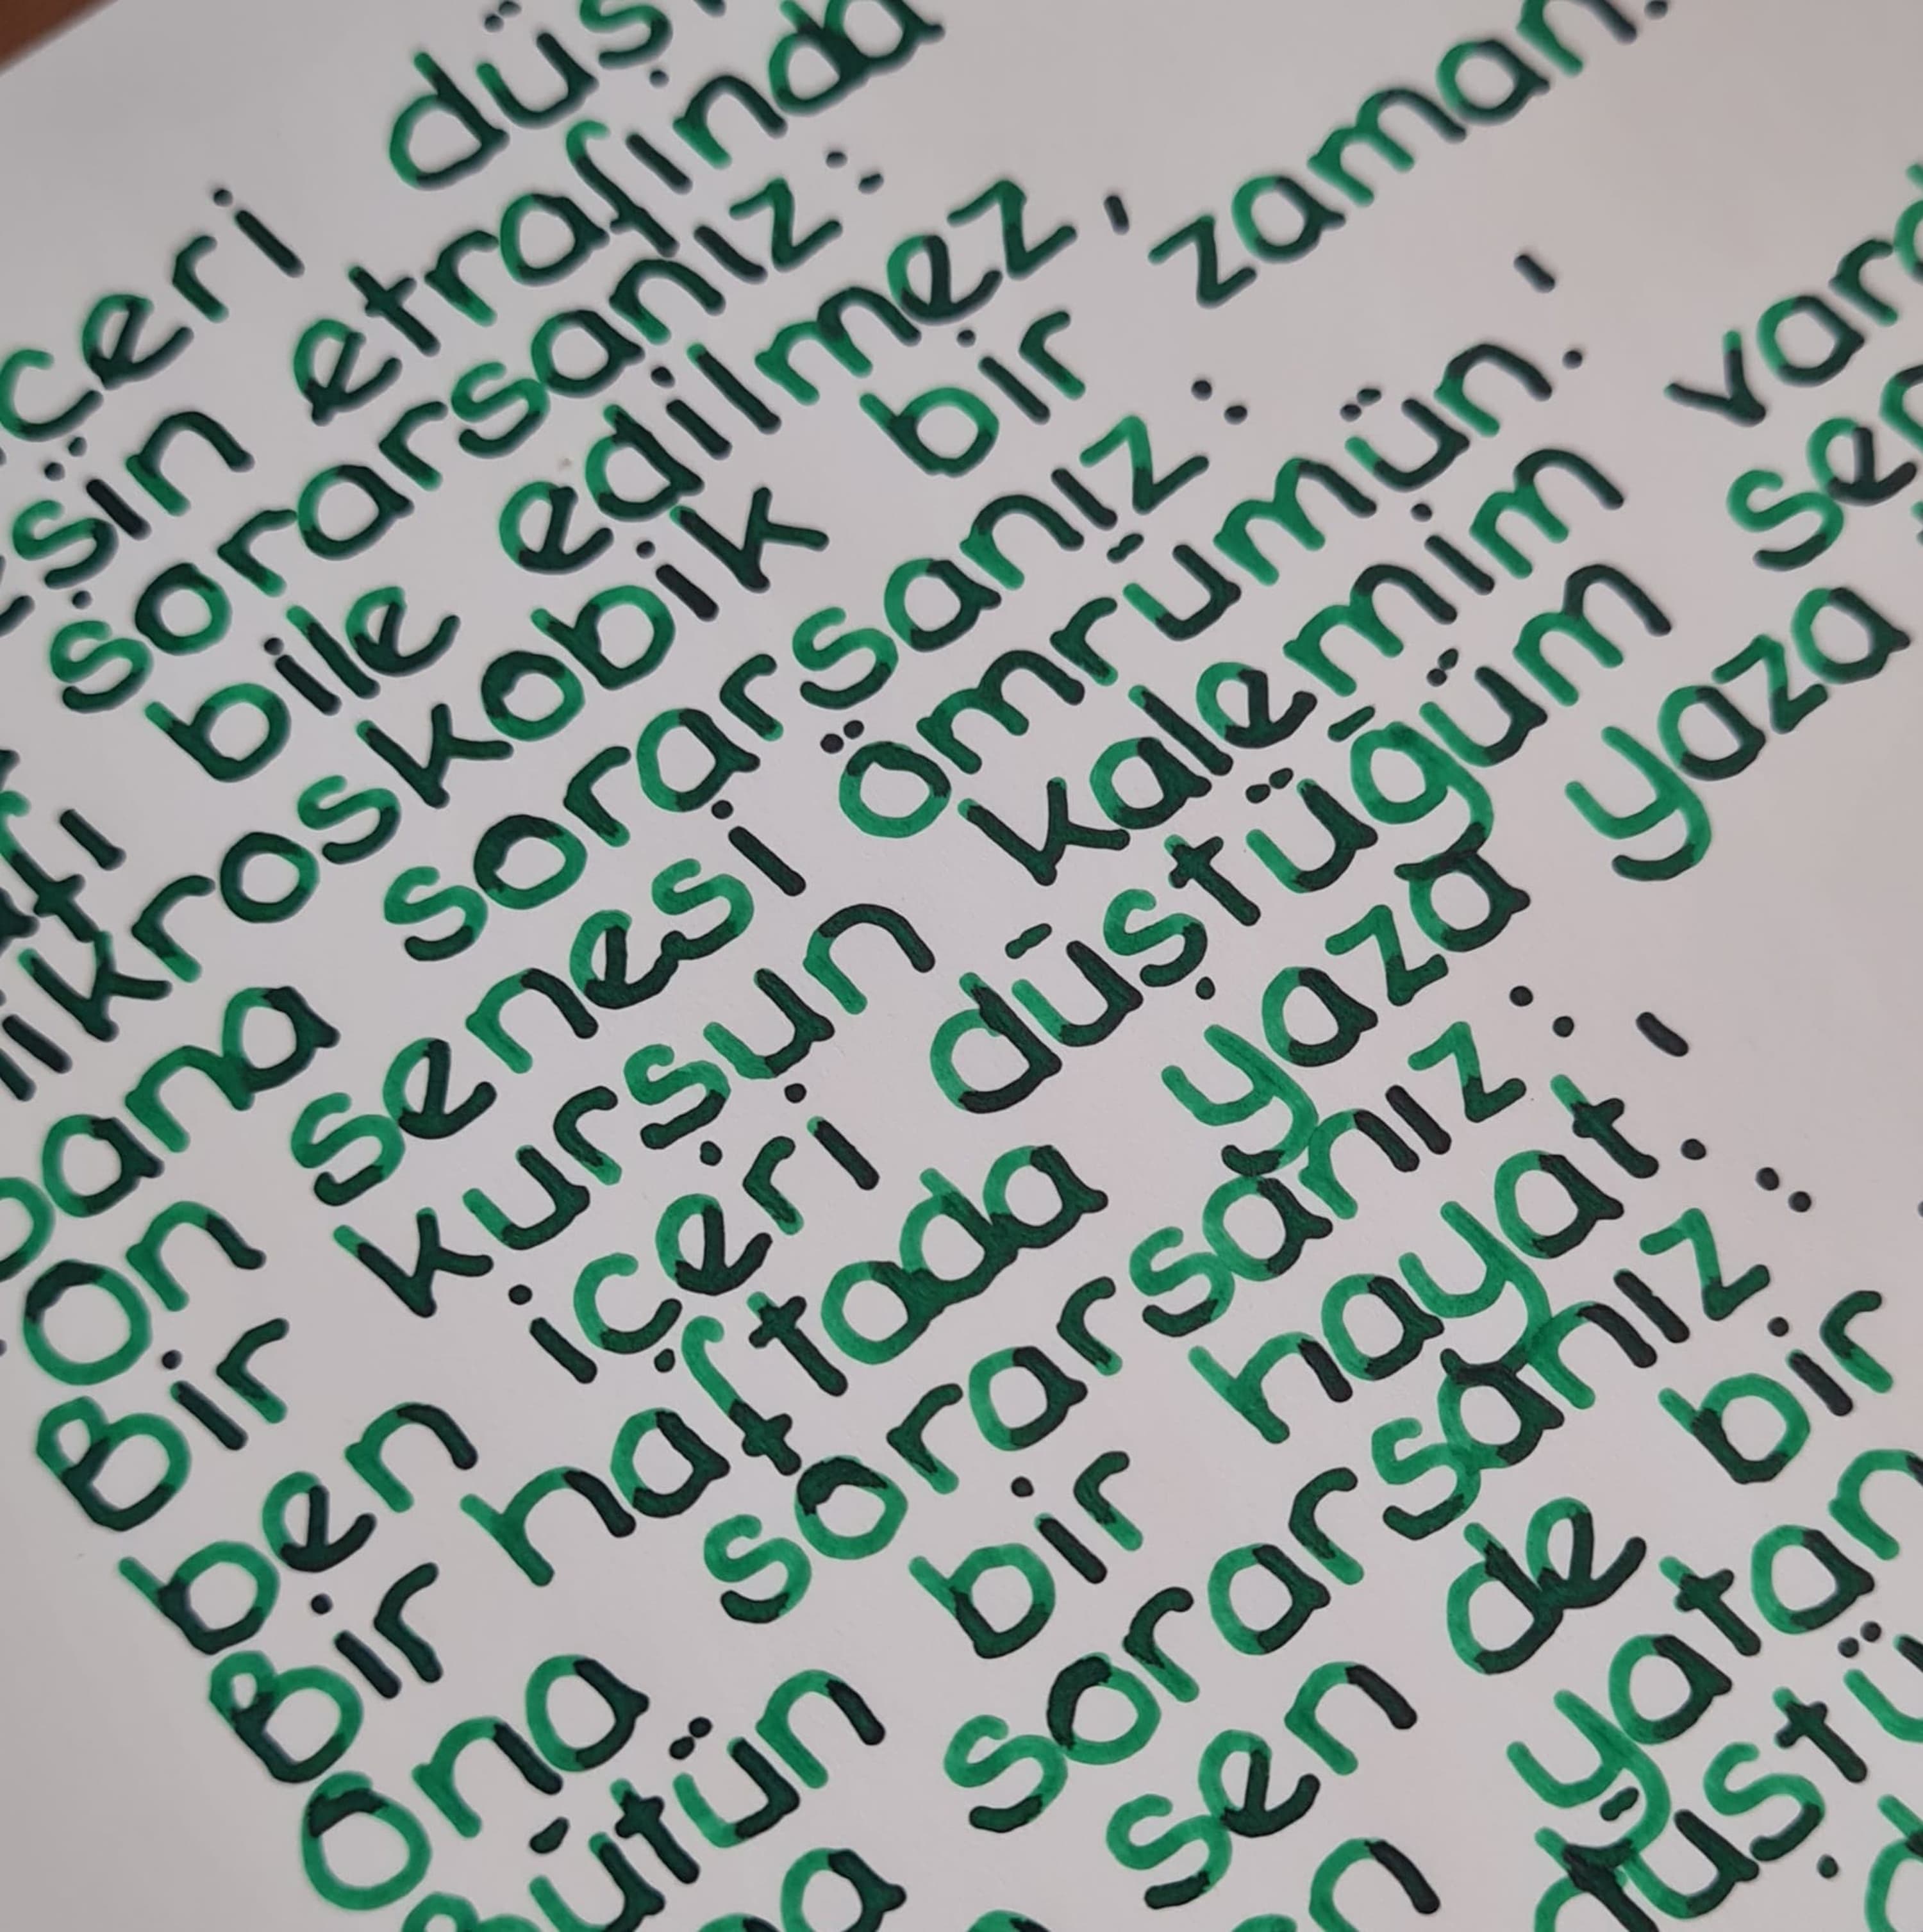 çeri düş
şin etrafında
sorarsanız:
fı bile edilmez,
ikroskobik bir zaman.
bana sorarsanız:
On senesi ömrümün.'
Bir kurşun kalemim vard
ben içeri düştüğüm sen
Bir haftada yaza yaza
Ona sorarsanız:
Bütün bir hayat.'
na sorarsanız:
sen de bir
n yatan
düştü